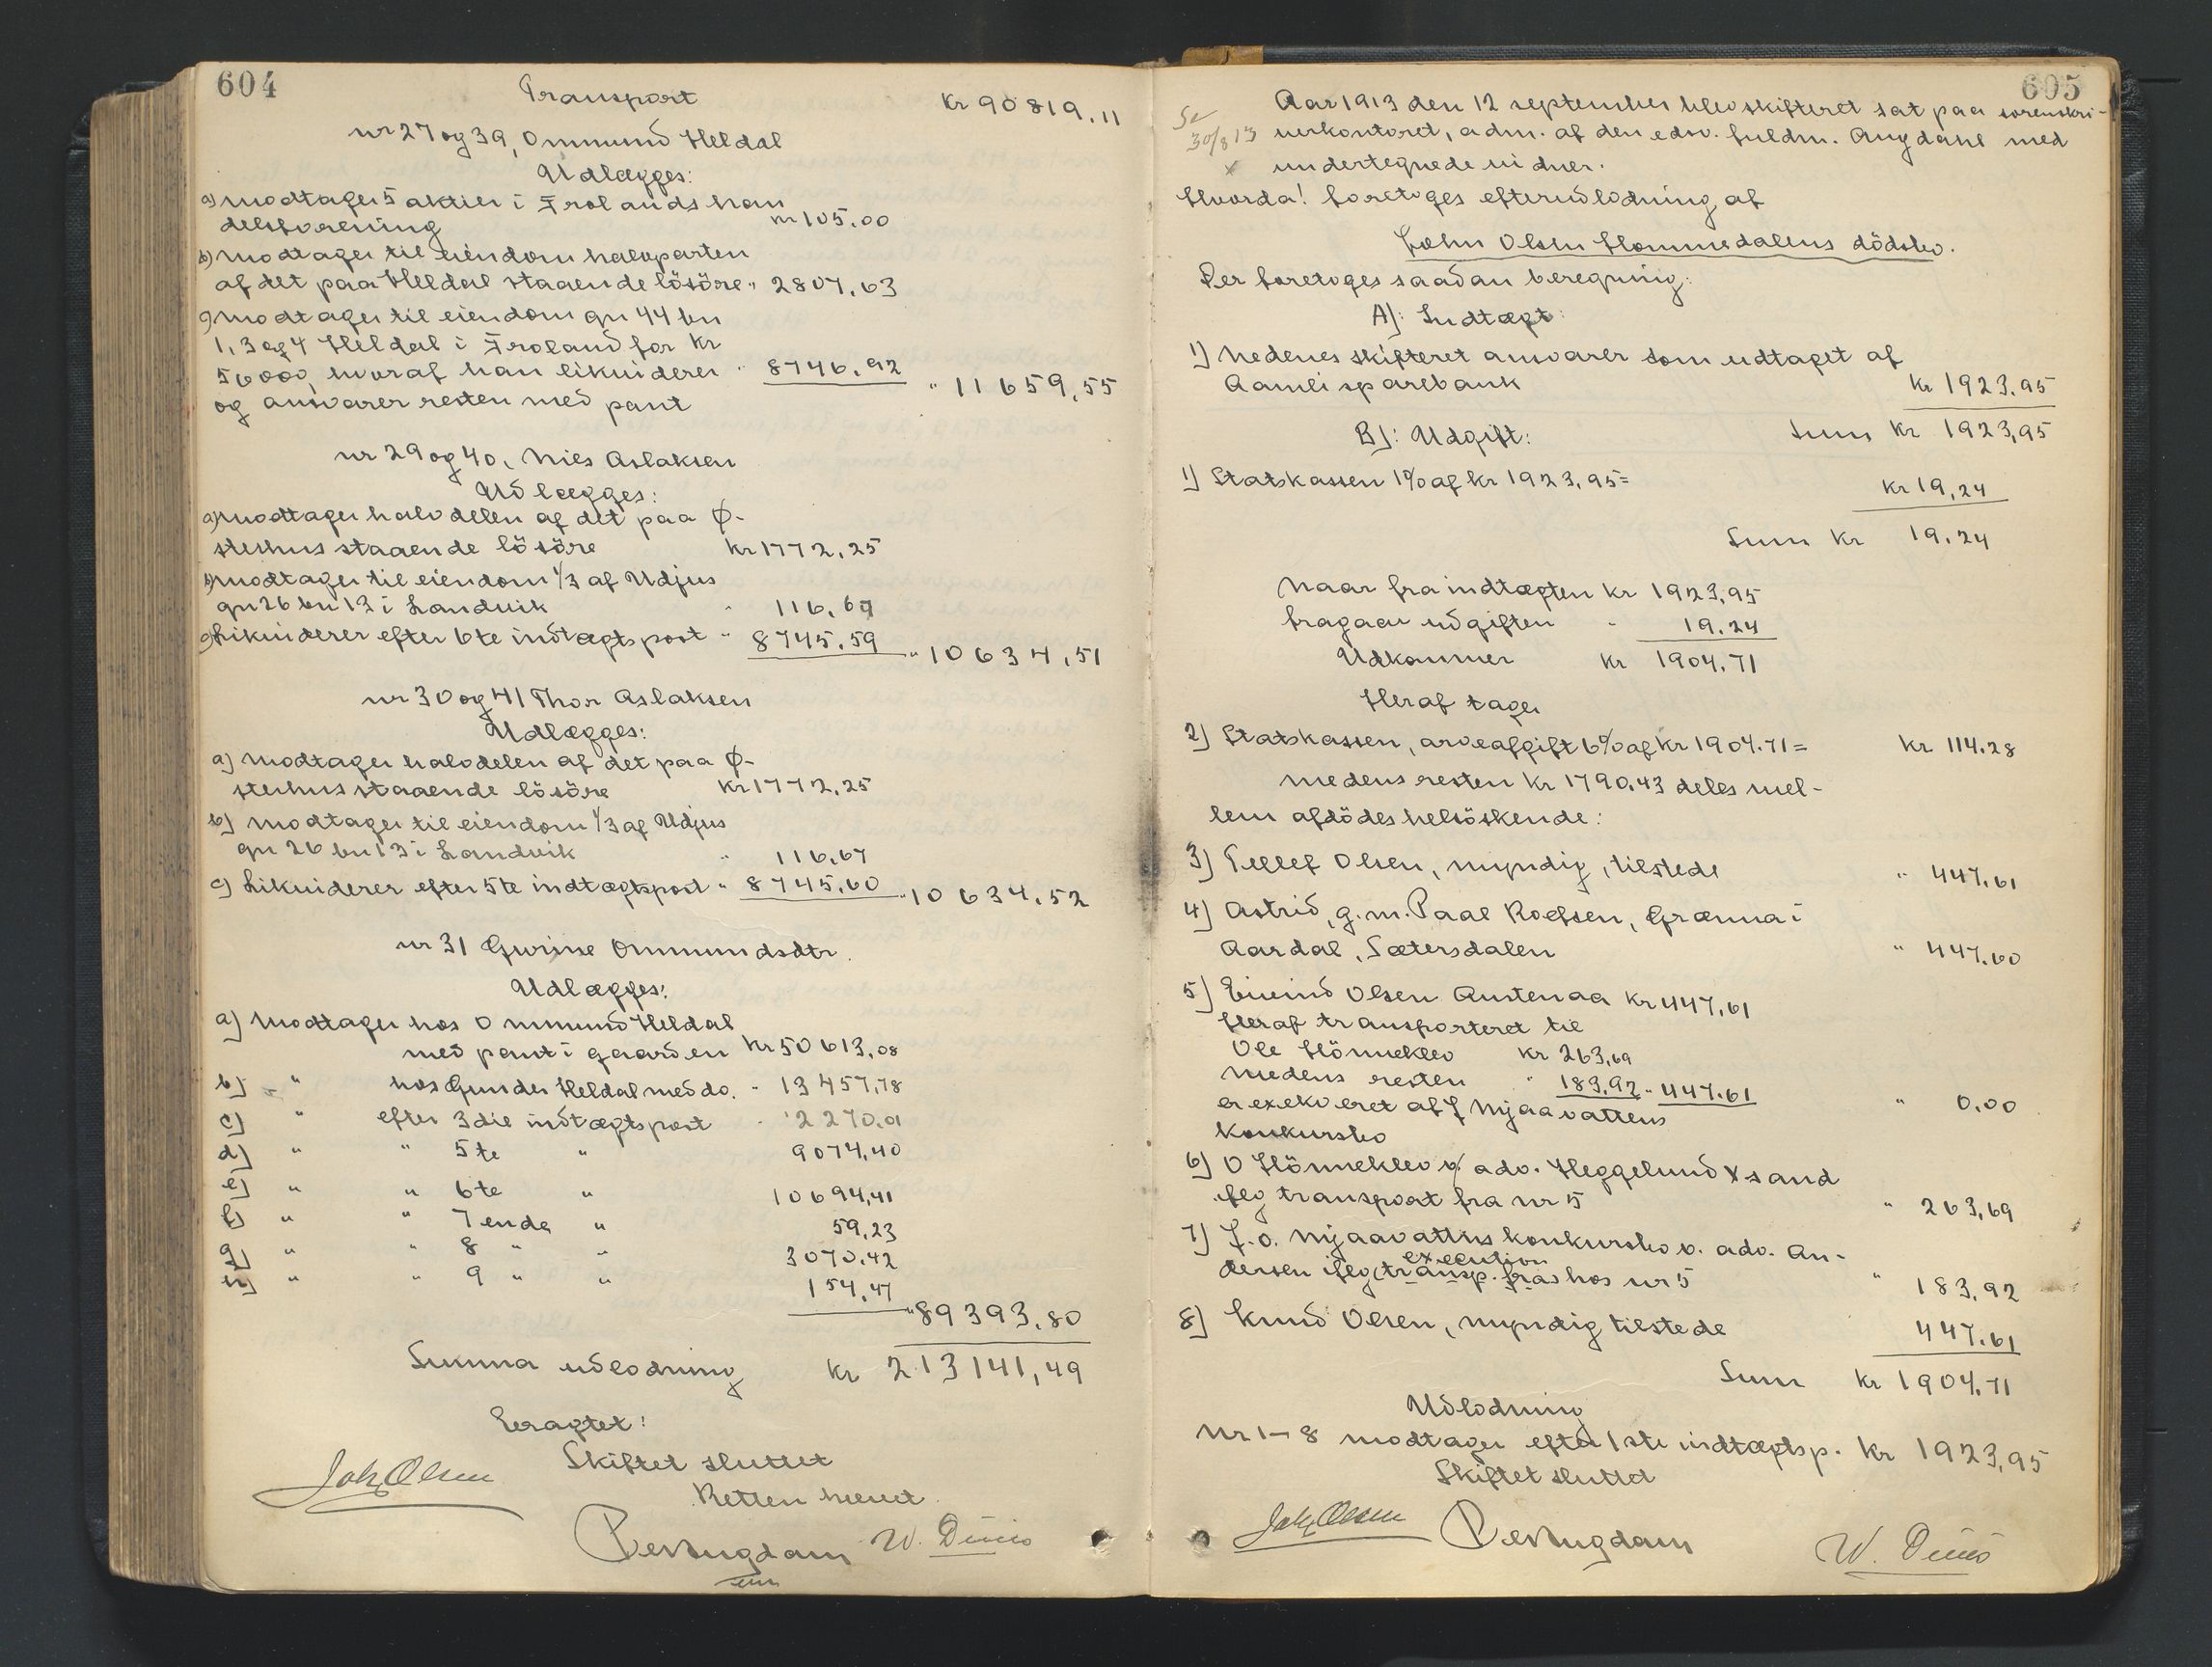 604
Transport kr 90819,11
nr 27 og 39, Ommund Heldal
Udlægges:
a) modtager 5 aktier i Frolands han
delsforening kr 105.00
b) modtager til eiendom halvparten
af det paa Heldal staaende lösöre " 2807,63
c) modtager til eiendom gn 44 bn
1, 3 og 4 Heldal i Froland for kr
56000, hvoraf han likviderer " 8746,92 " 11659,55
og ansvarer resten med pant
nr 29 og 40, Nies Aslaksen
Udlægges:
a) modtager halvdelen af det paa Ø-
sterhus staaende lösöre kr 1772,25
b) modtager til eiendom 1/3 af Udjus
gn 26 bn 13 i Landvik " 116,67
c) likviderer efter 6te indtægtspost " 8745,59 " 10634,51
nr 30 og 41 Thor Aslaksen
Udlægges:
a) modtager halvdelen af det paa Ø-
sterhus staaende lösöre kr 1772,25
b) modtager til eiendom 1/3 af Udjus
gn 26 bn 13 i Landvik " 116,67
c) likviderer efter 5te indtægtspost " 8745,60 " 10634,52
nr 31 Gurine Ommundsdtr.
Udlægges:
a) modtager hos Ommund Heldal
med pant i gaarden kr 50613,08
b) " hos Gunder Heldal med do. " 13457,78
c) " efter 3die indtægtspost " 2270,01
d) " " 5te " 9074,40
e) " " 6te " 10694,41
f) " " 7ende " 59,23
g) " " 8 " " 3070,42
h) " " 9 " " 154,47
" 89393,80
Summa udlodning kr 213141,49
Eragtet:
Skiftet sluttet
Retten hævet.
Joh. Olsen Per Augdahl W. Dücio
605
Se
30/8 13
x
Aar 1913 den 12 september blev skifteret sat paa sorenskri-
verkontoret, adm. af den edsv. fuldm. Augdahl med
undertegnede vidner.
Hvorda! foretoges efterudlodning af
John Olsen Hommedalens dödsbo.
Der foretoges saadan beregning:
A): Indtægt:
1) Nedenes skifteret ansvarer som udtaget af
Aamli sparebank kr 1923,95
Sum kr 1923,95
B): Udgift:
1) Statskassen 1% af kr 1923,95 = kr 19,24
Sum kr 19,24
Naar fra indtægten kr 1923,95
fragaar udgiften " 19.24
Udkommer kr 1904,71
Heraf tager
2) Statskassen, arveafgift 6% af kr 1904.71 = kr 114.28
medens resten kr 1790.43 deles mel-
lem afdödes helsöskende:
3) Tellef Olsen, myndig, tilstede " 447,61
4) Astrid, g.m. Paal Roefsen, Grænna i
Aardal, Sætersdalen " 447,60
5) Eivind Olsen Austenaa kr 447,61
Heraf transporteret til
Ole Hönneklev kr 263,69
medens resten " 183,92 " 447.61 " 0.00
er exekveret af J Mjaavattens
konkursbo
6) O Hönneklev v/ adv. Heggelund X sand
iflg transport fra nr 5 " 263,69
7) J. O. Mjaavattns konkursbo v. adv. An-
execution
dersen iflg transp. fra hos nr 5 " 183,92
8) Knud Olsen, myndig tilstede 447.61
Sum kr 1904,71
Udlodning
Nr 1-8 modtager efter 1ste indtægtsp. kr 1923,95
Skiftet sluttet
Joh. Olsen Per Augdahl W. Dücio